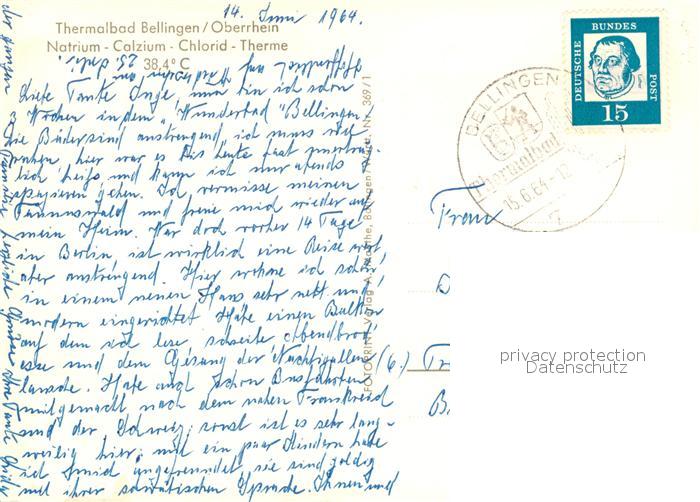 14. Juni 1964.
Thermalbad Bellingen/Oberrhein
Natrium - Calzium - Chlorid - Therme
38,4° C
Liebe Tante Inge, nun bin ich schon
Wochen in dem "Wunderbad" Bellingen.
die Bäder sind anstrengend, ich muss viel
ruhen, hier war es bis heute fast unerträg-
lich heiß und kann ich nur abends
spazieren gehen. Ich vermisse meinen
Taunuswald und freue mich wieder auf
mein Heim. War doch vorher 14 Tage
in Berlin, ist wirklich eine Reise wert,
aber anstrengend. Hier wohne ich schön,
in einem neuen Haus sehr nett und
modern eingerichtet. Habe einen Balkon
auf dem ich lese, schreibe, Abendbrod
esse und dem Gesang der Nachtigallen
lausche. Habe auch schon Busfahrten
mitgemacht nach dem nahen Frankreich
und der Schweiz; sonst ist es sehr lang-
weilig hier; mit ein paar Kindern habe
ich mich angefreundet, sie sind goldig
mit ihrer Sprache. Ihnen und
der ganzen Familie herzliche Grüße Ihre Tante
FOTOPRINT Verlag Bellingen/Nr. 369/1
DEUTSCHE BUNDES POST
15
BELLINGEN
Thermalbad
15.6.64-12
Frau
(6.)
privacy protection
Datenschutz